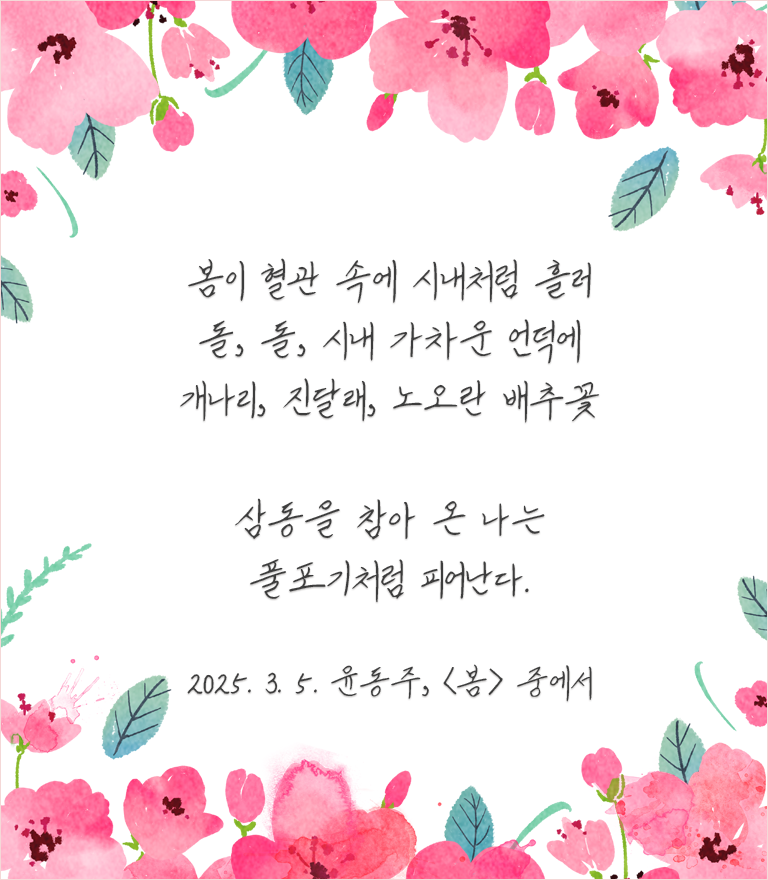 봄이 혈관 속에 시내처럼 흘러
돌, 돌, 시내 가차운 언덕에
개나리, 진달래, 노오란 배추꽃
삼동을 참아 온 나는
풀포기처럼 피어난다.
2025. 3. 5. 윤동주, <봄> 중에서